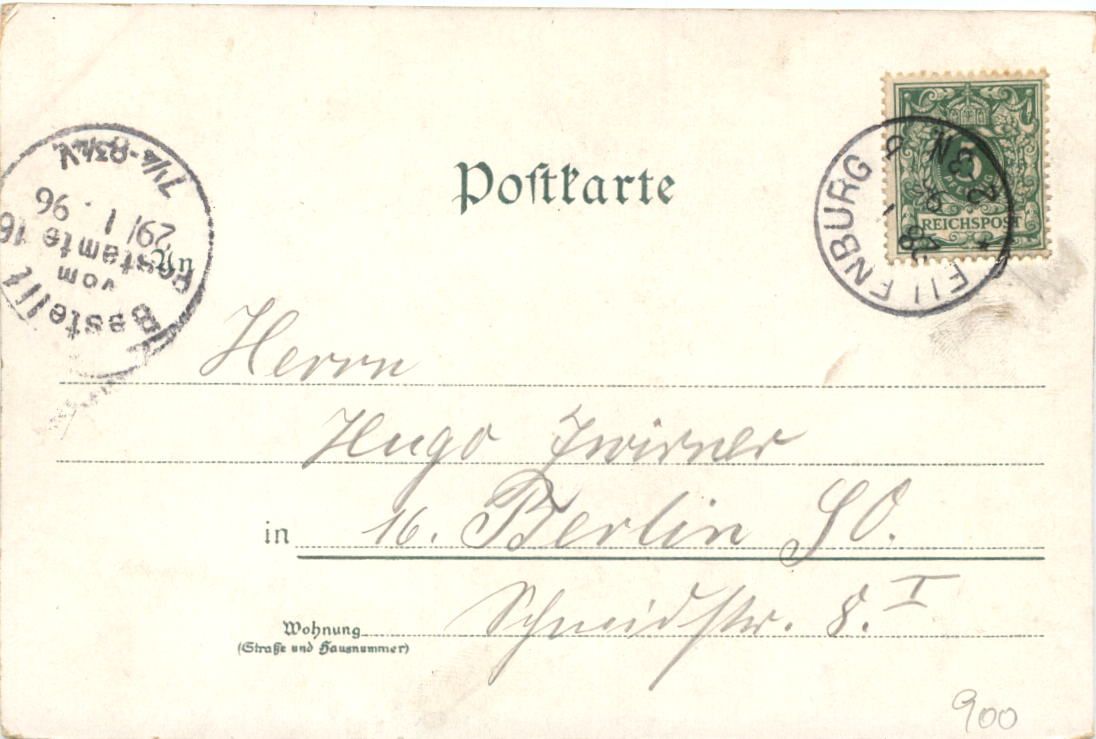 Postkarte
5
PFENNIG
REICHSPOST
EILENBURG
28
1
96
2-3N
*
Bestellt
vom
Postamte 16
29/1. 96
7¼-8¾V.
An
Herrn
Hugo Zwirner
in 16. Berlin SO.
Wohnung
(Straße und Hausnummer)
Schmidstr. 8. I
900